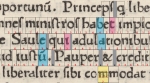 oportunū. Princeps q̄ lib
nnes ministros habet impio
Saule qui adulationibus
ud iustū. Pauper & credit
liberaliter sibi commodat